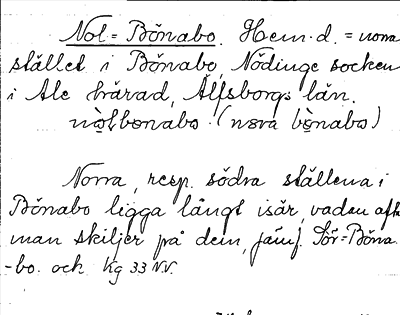 Nol=Bönabo. Hem.d. = norra
stället i Bönabo, Nödinge socken
i Ale härad, Älfsborgs län.
nòlbonabo (nora bònabo)
Norra, resp. södra ställena i
Bönabo ligga långt isär, vadan
man skiljer på dem, jämf. Sör=Böna
-bo. och Kg 33 NV.